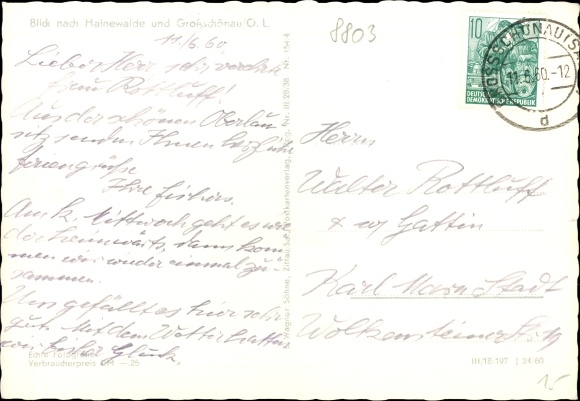 Blick nach Hainewalde und Großschönau O. L.
8803
11/6.60.
Lieber Herr, sehr verehrte
Frau Rottluff!
Aus der schönen Oberlau-
sitz senden Ihnen herzliche
Feriengrüße
Ihre
Am k. Mittwoch geht es wie-
der heimwärts, dann kom-
men wir wieder einmal zu-
sammen.
Uns gefällt es hier sehr
gut. Mit dem Wetter hatten
wir bisher Glück.
Echte Fotografie
Verbraucherpreis DM —.25
III/18/197 J 24 60
10
DEUTSCHE
DEMOKRATISCHE REPUBLIK
GROSSSCHÖNAU (SA
11.6.60.-12
d
Herrn
Walter Rottluff
& Gattin
Karl Marx Stadt
Wolkensteiner Str.
15